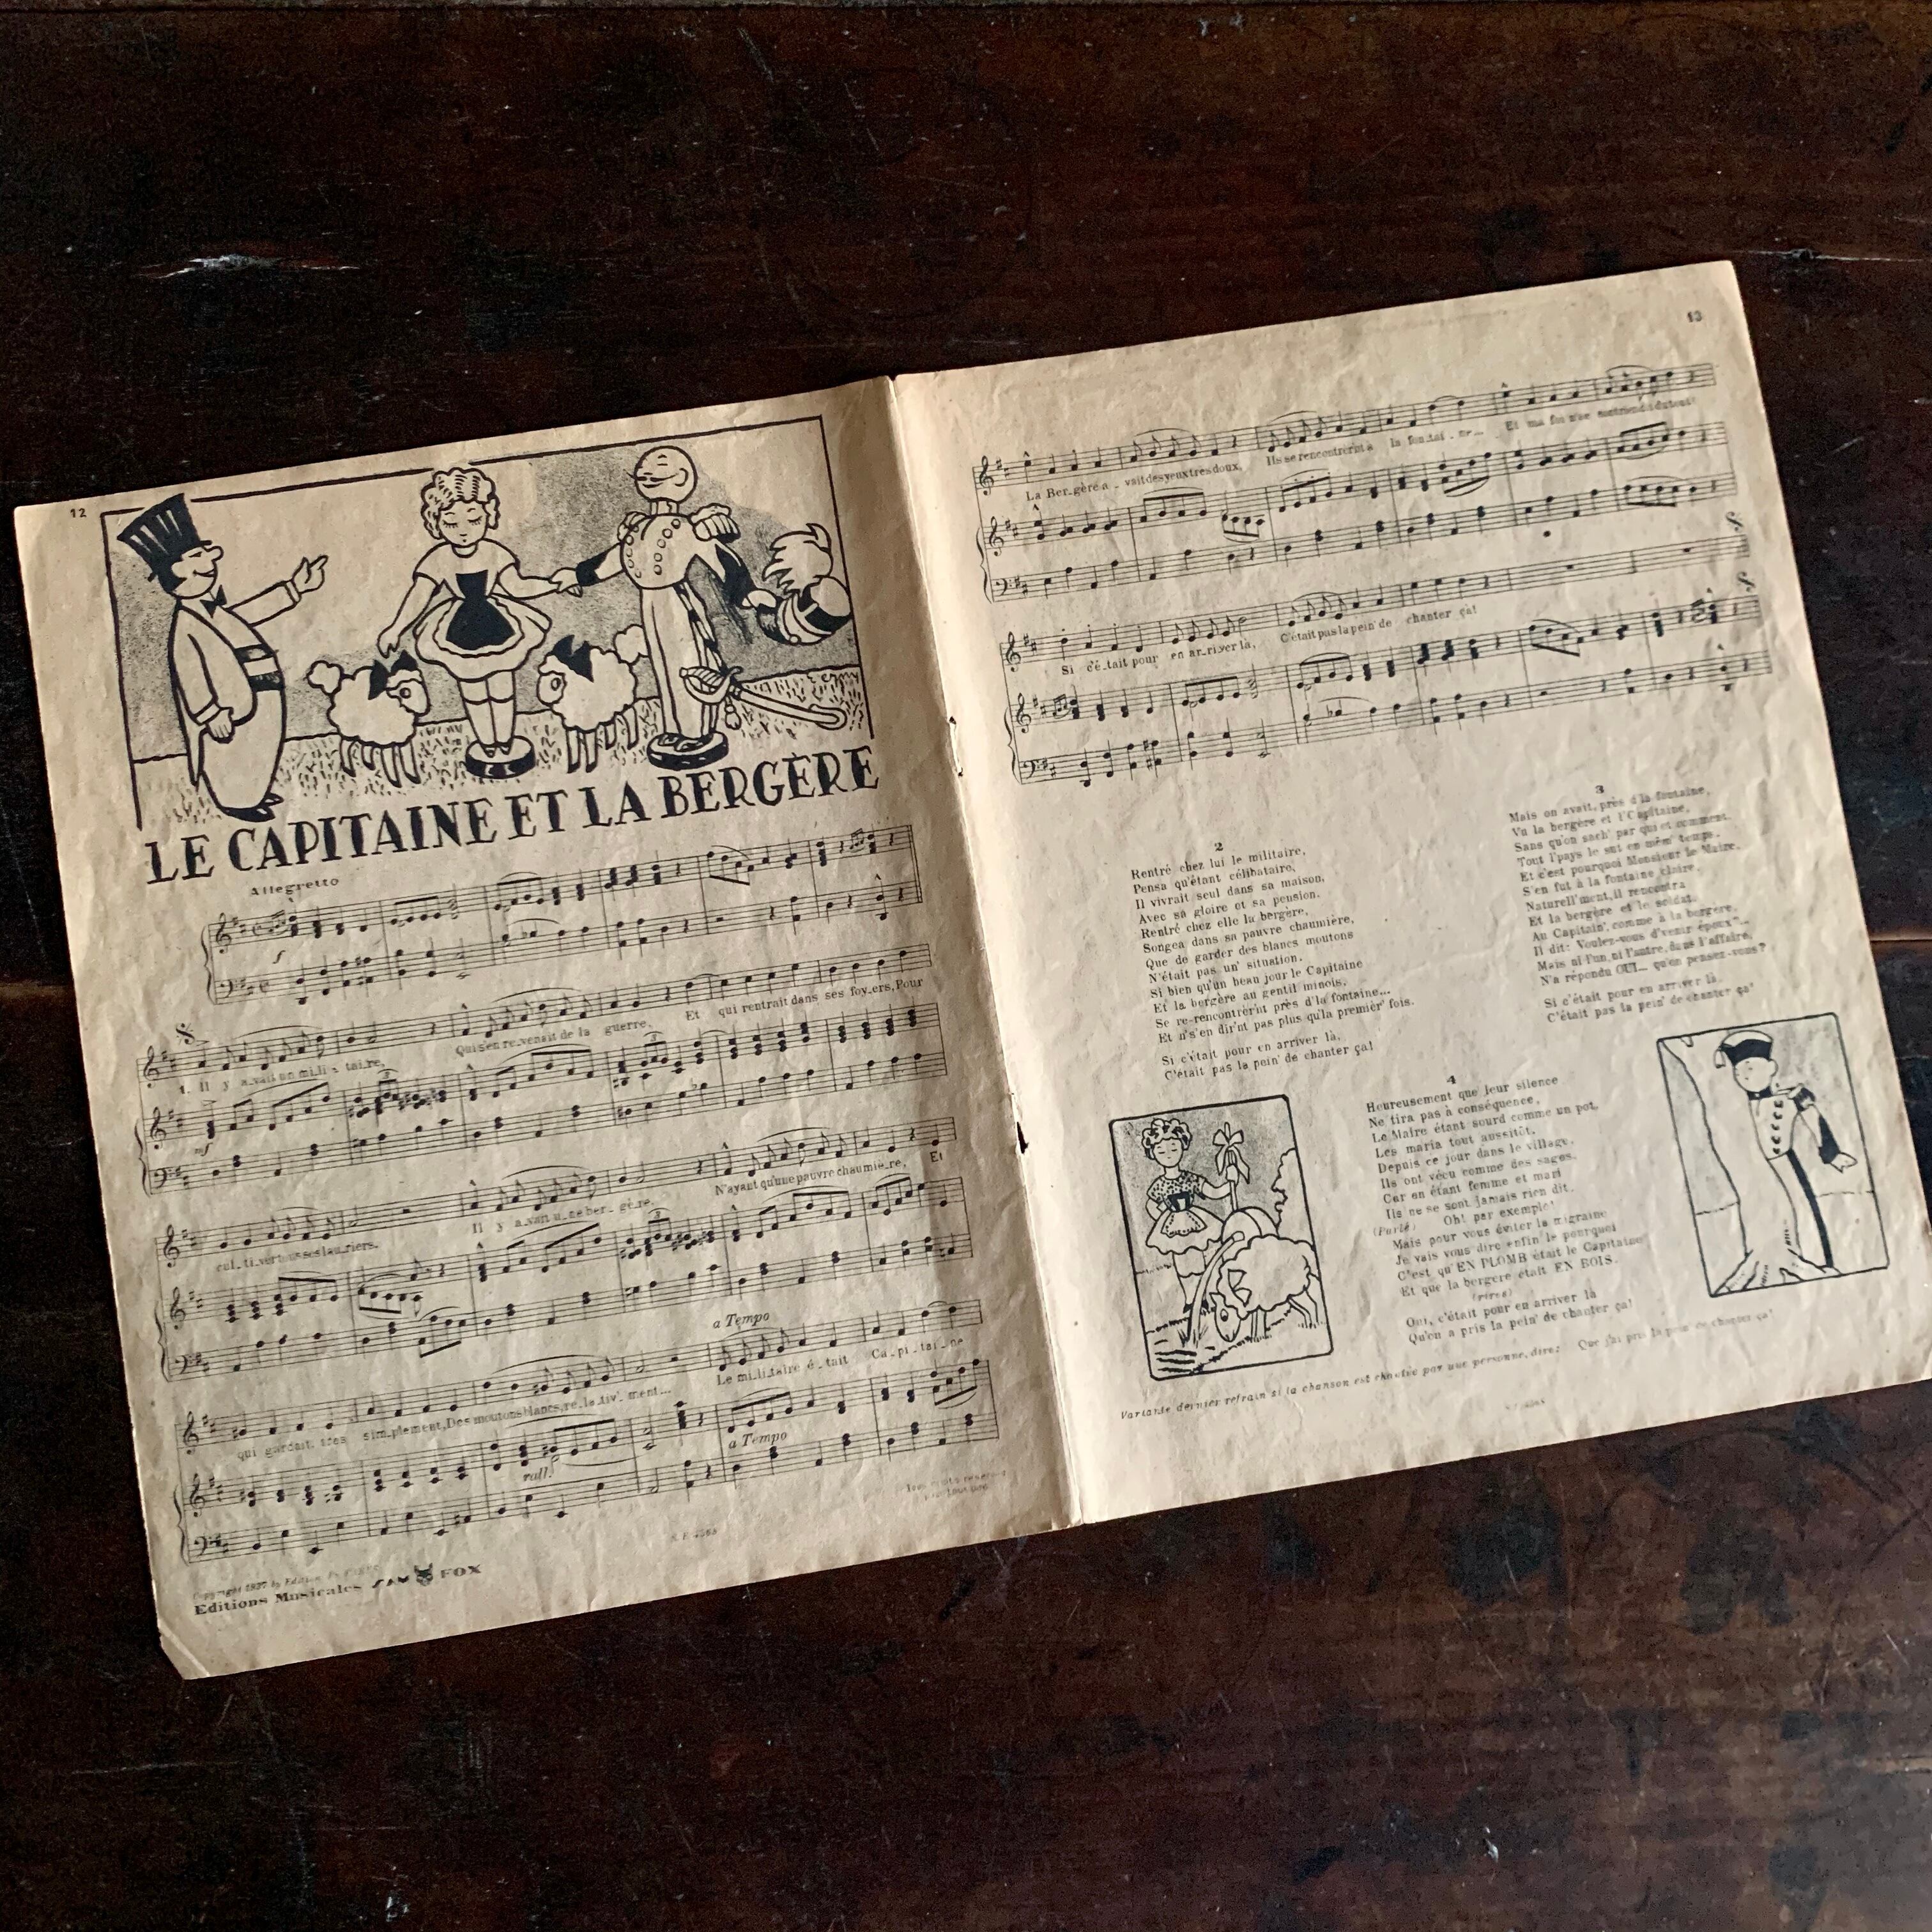 12
LE CAPITAINE ET LA BERGÈRE
Allegretto
f
1. Il y a_vait un mi_li_taire, Qui s'en re_venait de la guerre, Et qui rentrait dans ses foy_ers, Pour
mf
cul_ti_ver tous ses lau_riers. Il y a_vait u_ne ber_gère, N'ayant qu'une pauvre chaumiè_re, Et
a Tempo
qui gardait, très sim_plement, Des moutons blancs, re_la_tiv'_ment... Le mi_li_taire é_tait Ca_pi_tai_ne
rall.
a Tempo
Editions Musicales SAM FOX
13
La Ber_gère a_vait des yeux très doux, Ils se rencontrèrent à la fon_tai_ne... Et ma foi
Si c'é_tait pour en ar_river là, C'était pas la pein' de chanter ça!
2
Rentré chez lui le militaire,
Pensa qu'étant célibataire,
Il vivrait seul dans sa maison,
Avec sa gloire et sa pension.
Rentré chez elle la bergère,
Songea dans sa pauvre chaumière,
Que de garder des blancs moutons
N'était pas un' situation.
Si bien qu'un beau jour le Capitaine
Et la bergère au gentil minois,
Se re-rencontrèr'nt près d'la fontaine...
Et n's'en dir'nt pas plus qu'la premièr' fois.
Si c'était pour en arriver là,
C'était pas la pein' de chanter ça!
3
Mais on avait, près d'la fontaine,
Vu la bergère et l'Capitaine,
Sans qu'on sach' par qui et comment.
Tout l'pays le sut en mêm' temps.
Et c'est pourquoi Monsieur le Maire,
S'en fut à la fontaine claire,
Naturell'ment, il rencontra
Et la bergère et le soldat.
Au Capitain', comme à la bergère,
Il dit: Voulez-vous d'venir époux"...
Mais ni l'un, ni l'autre, dans l'affaire,
N'a répondu OUI... qu'en pensez-vous?
Si c'était pour en arriver là
C'était pas la pein' de chanter ça!
4
Heureusement que leur silence
Ne tira pas à conséquence,
Le Maire étant sourd comme un pot,
Les maria tout aussitôt.
Depuis ce jour dans le village,
Ils ont vécu comme des sages.
Car en étant femme et mari
Ils ne se sont jamais rien dit.
(Parlé) Oh! par exemple!
Mais pour vous éviter la migraine
Je vais vous dire enfin le pourquoi
C'est qu'EN PLOMB était le Capitaine
Et que la bergère était EN BOIS.
(rires)
Oui, c'était pour en arriver là
Qu'on a pris la pein' de chanter ça!
Variante dernier refrain si la chanson est chantée par une personne, dire: Que j'ai pris la pein' de chanter ça!